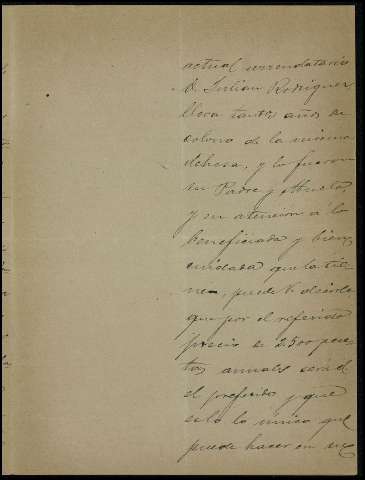 actual arrendatario
D. Julian Rodriguez
lleva tantos años de
colono de la misma
dehesa, y lo fueron
su Padre y Abuelo,
y en atención á lo
beneficiada y bien
cuidada que la tie-
ne, puede V. decirle
que por el referido
precio de 2500 pese
tas anuales será él
el preferido y que
es lo único que
puede hacer en su